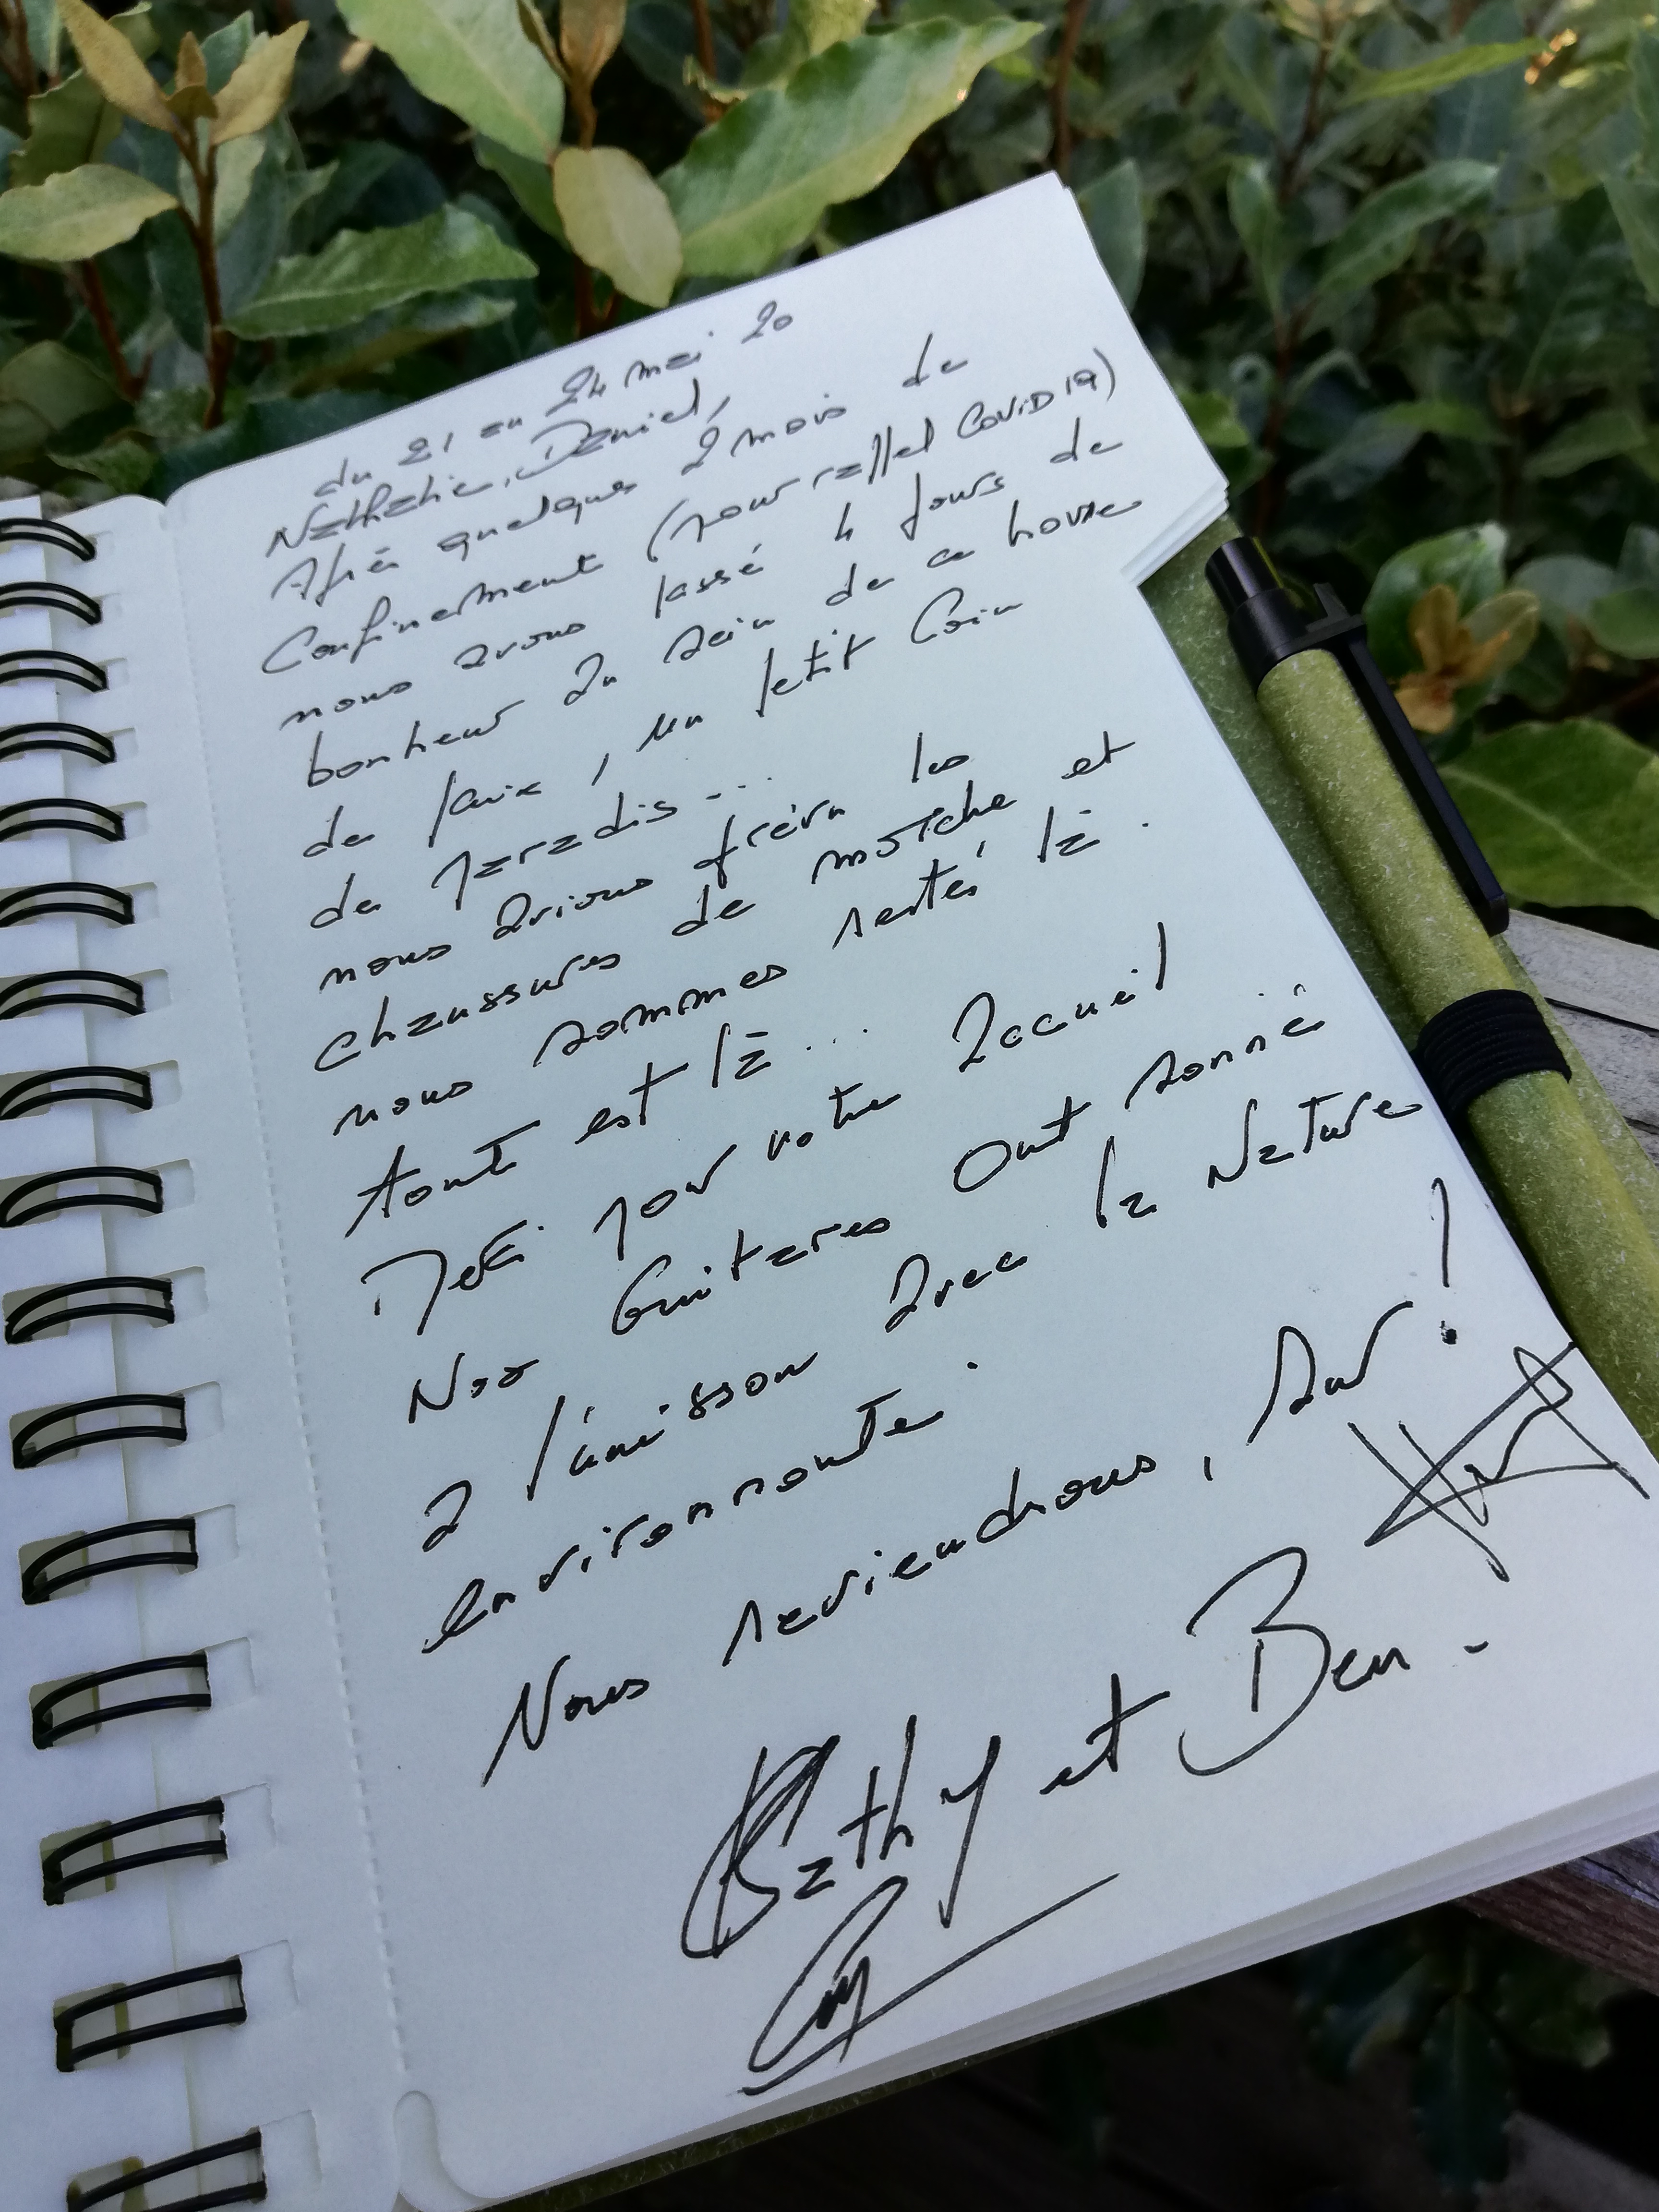 du 21 au 24 mai 20
Nathalie, Daniel,
Après quelques 2 mois de
Confinement (pour rappel COVID 19)
nous avons passé 4 jours de
bonheur au sein de ce havre
de paix, un petit Coin
de paradis...
nous avions prévu les
chaussures de marche et
nous sommes restés là.
tout est là...
Merci pour votre accueil
Nos Guitares Ont sonné
à l'unisson avec la Nature
environnante.
Nous reviendrons, sur !
Kathy et Ben.